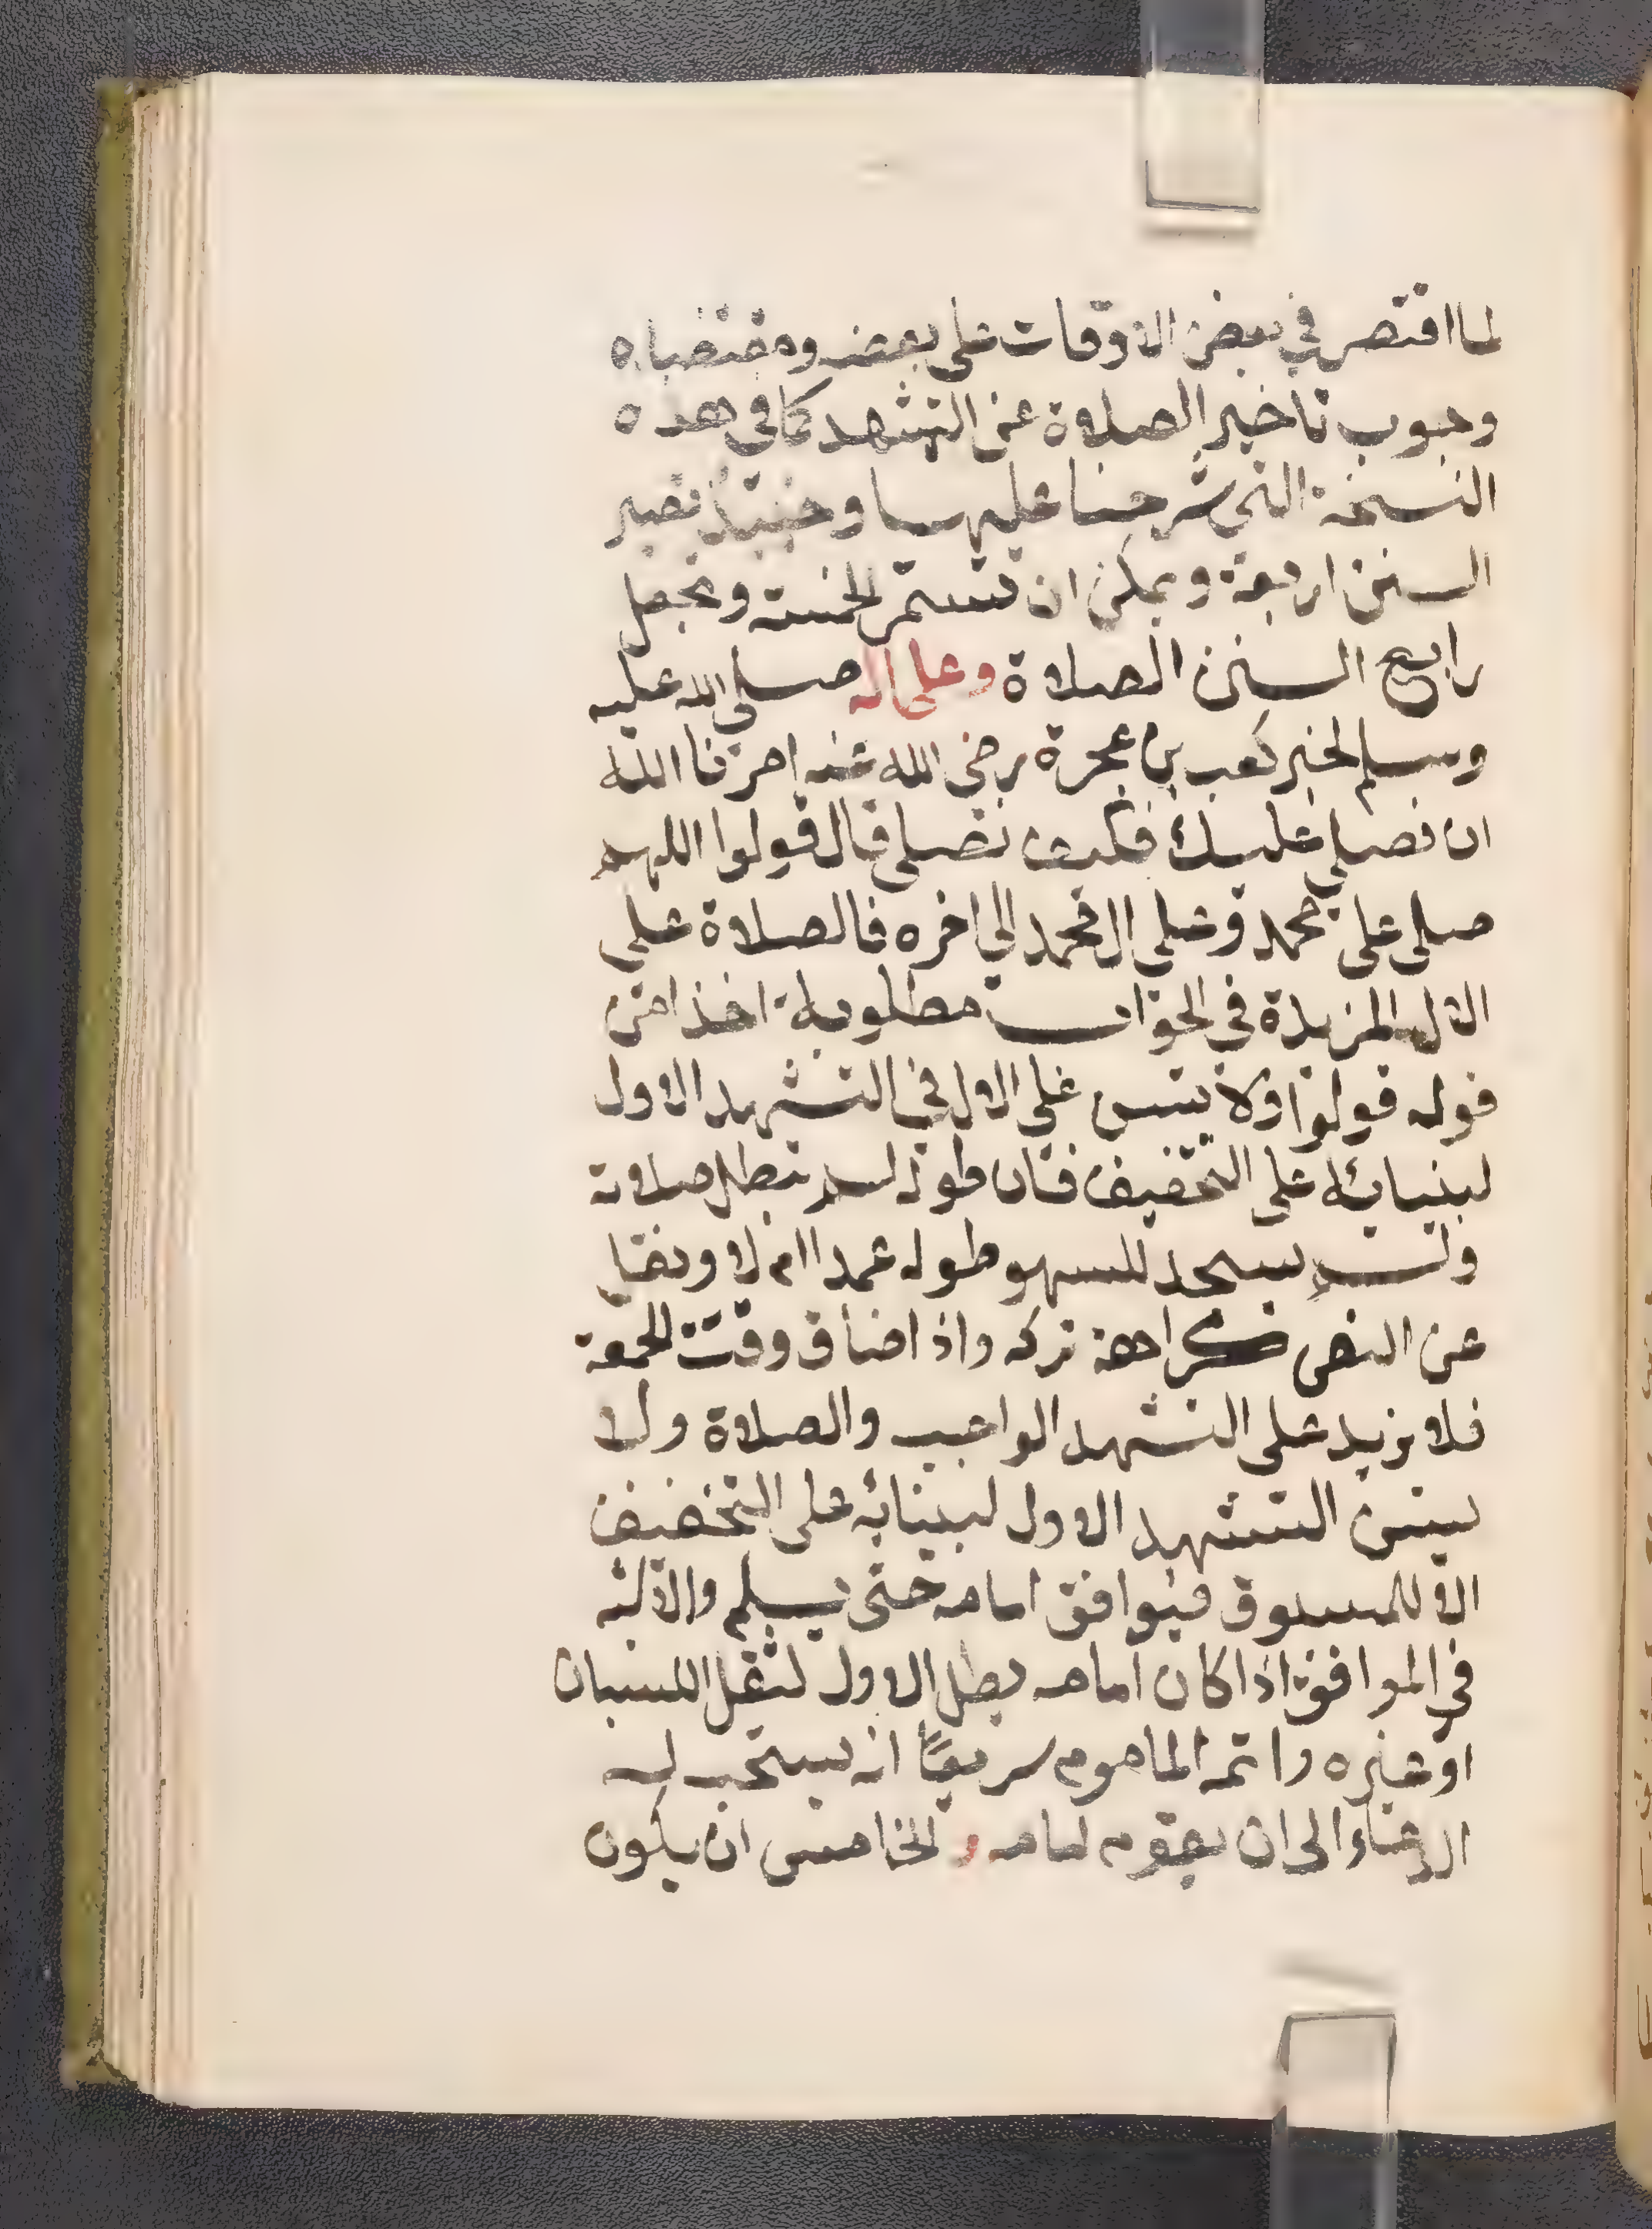 لما اقتصر في بعض الاوقات على بعضه ومقتضاه
وجوب تاخير الصلاة عن التشهد كما في هده
النسخة التي شرحنا عليها وحينئذ نصير
السنن اربعة ويمكن ان تستمر الخمسة ونجعل
رابع السنن الصلاة وعلى اله صلى الله عليه
وسلم لخبر كعب بن عجرة رضي الله عنه امرنا الله
ان نصلي عليك فكيف نصلي قال قولوا اللهم
صلى على محمد وعلي ال محمد الي اخره فالصلاة علي
الال المزيدة في الجواب مطلوبة اخذا من
قوله قولوا ولا يسن علي الال في التشهد الاول
لبنيائه على التخفيف فان طوله لم تبطل صلاته
ولم يسجد للسهو طوله عمدا ام لا ونقل
عن النص كراهة تركه واذا ضاق وقت الجمعة
فلا يزيد على التشهد الواجب والصلاة ولا
يسن التشهد الاول لبينائه على التخفيف
الا للمسبوق فيوافق امامه حتى يسلم والا
في الموافق اذا كان امامه يطل الاول لثقل اللسان
او غيره واتمه الماموم سريعًا انه يستحب له
الدعاء الى ان يقوم امامه والخامس ان يكون